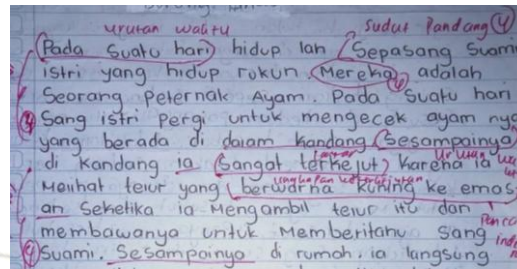 urutan waktu sudut Pandang 4
Pada Suatu hari hidup lah Sepasang Suami
istri yang hidup rukun. Mereka adalah
Seorang peternak Ayam. Pada Suatu hari
Sang istri pergi untuk mengecek ayam nya
yang berada di dalam kandang Sesampainya
di kandang ia Sangat terkejut karena ia
Melihat telur yang berwarna kuning ke emas
an Seketika ia Mengambil telur itu dan
membawanya untuk Memberitahu Sang
Suami. Sesampainya di rumah, ia langsung